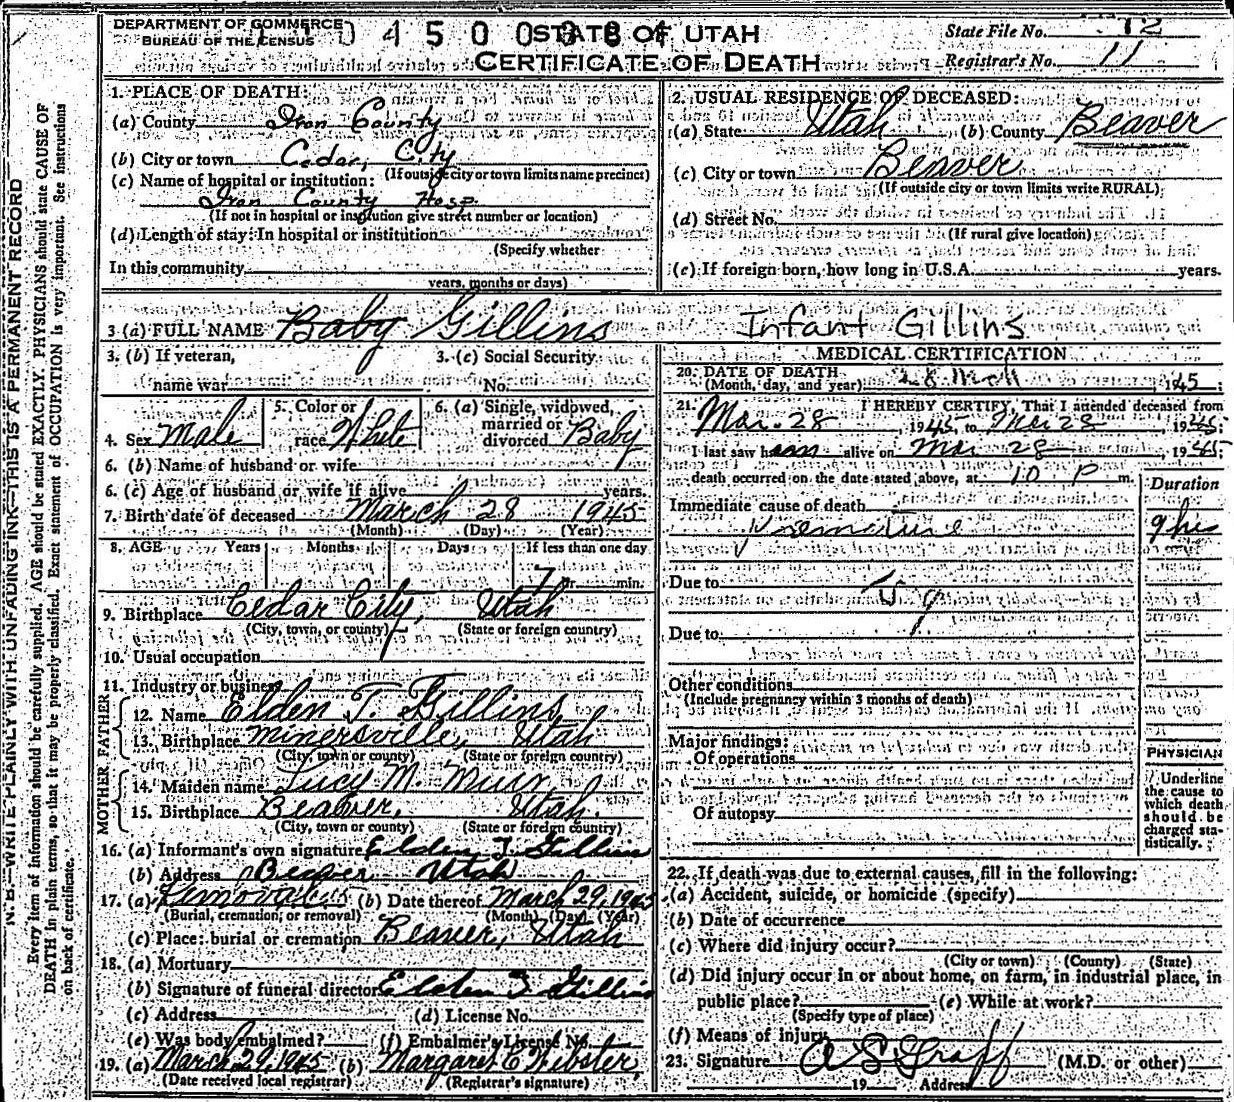 DEPARTMENT OF COMMERCE
BUREAU OF THE CENSUS
STATE OF UTAH
CERTIFICATE OF DEATH
State File No. 12
Registrar's No. 11
N. B.—WRITE PLAINLY WITH UNFADING INK—THIS IS A PERMANENT RECORD
Every item of information should be carefully supplied. AGE should be stated EXACTLY. PHYSICIANS should state CAUSE OF
DEATH in plain terms, so that it may be properly classified. Exact statement of OCCUPATION is very important. See instructions
on back of certificate.
1. PLACE OF DEATH:
(a) County Iron County
(b) City or town Cedar City
(If outside city or town limits name precinct)
(c) Name of hospital or institution:
Iron County Hosp.
(If not in hospital or institution give street number or location)
(d) Length of stay: In hospital or institution
(Specify whether
In this community
years, months or days)
2. USUAL RESIDENCE OF DECEASED:
(a) State Utah (b) County Beaver
(c) City or town Beaver
(If outside city or town limits write RURAL)
(d) Street No.
(If rural give location)
(e) If foreign born, how long in U.S.A. years.
3 (a) FULL NAME Baby Gillins Infant Gillins
3. (b) If veteran,
name war
3. (c) Social Security
No.
4. Sex Male
5. Color or
race White
6. (a) Single, widowed,
married or
divorced Baby
6. (b) Name of husband or wife
6. (c) Age of husband or wife if alive years.
7. Birth date of deceased March 28 1945
(Month) (Day) (Year)
8. AGE Years Months Days If less than one day
7 hr. min.
9. Birthplace Cedar City, Utah
(City, town, or county) (State or foreign country)
10. Usual occupation
11. Industry or business
FATHER
12. Name Elden T. Gillins
13. Birthplace Minersville, Utah
(City, town or county) (State or foreign country)
MOTHER
14. Maiden name Lucy M. Murr
15. Birthplace Beaver, Utah.
(City, town or county) (State or foreign country)
16. (a) Informant's own signature Elden T. Gillins
(b) Address Beaver Utah
17. (a) Removal (b) Date thereof March 29, 1945
(Burial, cremation, or removal) (Month) (Day) (Year)
(c) Place: burial or cremation Beaver, Utah
18. (a) Mortuary
(b) Signature of funeral director Elden T Gillins
(c) Address (d) License No.
(e) Was body embalmed? (f) Embalmer's License No.
19. (a) March 29, 1945 (b) Margaret C Webster,
(Date received local registrar) (Registrar's signature)
MEDICAL CERTIFICATION
20. DATE OF DEATH
(Month, day, and year) 28 Mch 1945;
21. I HEREBY CERTIFY, That I attended deceased from
Mar. 28, 1945, to Mar 28, 1945;
I last saw him alive on Mar 28, 1945;
death occurred on the date stated above, at 10 P m.
Duration
Immediate cause of death
Premature 9 hrs
Due to
Due to
Other conditions
(Include pregnancy within 3 months of death)
Major findings:
Of operations
Of autopsy
PHYSICIAN
Underline
the cause to
which death
should be
charged sta-
tistically.
22. If death was due to external causes, fill in the following:
(a) Accident, suicide, or homicide (specify)
(b) Date of occurrence
(c) Where did injury occur?
(City or town) (County) (State)
(d) Did injury occur in or about home, on farm, in industrial place, in
public place? (e) While at work?
(Specify type of place)
(f) Means of injury
23. Signature A L Graff (M.D. or other)
19 Address